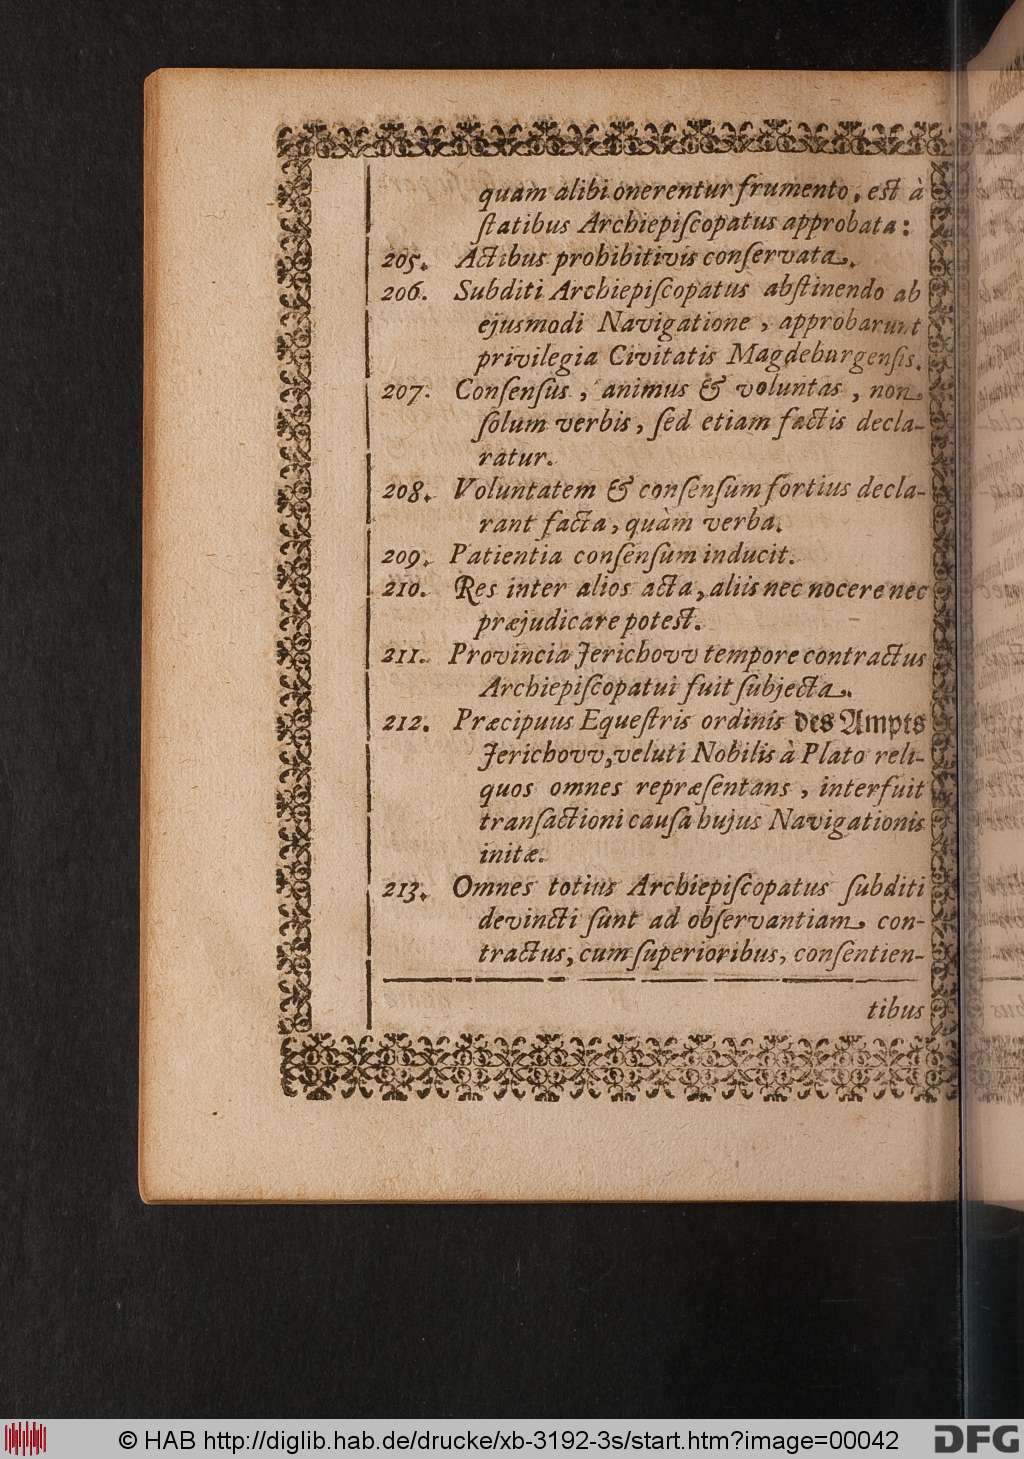 quam alibi onerentur frumento, est à
ſtatibus Archiepiſcopatus approbata:
205. Actibus prohibitivis conſervata.
206. Subditi Archiepiſcopatus abſtinendo ab
ejusmodi Navigatione, approbarunt
privilegia Civitatis Magdeburgenſis.
207. Conſenſus, animus & voluntas, non
ſolum verbis, ſed etiam factis decla-
ratur.
208. Voluntatem & conſenſum fortius decla-
rant facta, quàm verba.
209. Patientia conſenſum inducit.
210. Res inter alios acta, aliis nec nocere nec
præjudicare potest.
211. Provincia Jerichovv tempore contractus
Archiepiſcopatui fuit ſubjecta.
212. Præcipuus Equeſtris ordinis des Ampts
Jerichovv, veluti Nobilis à Plato reli-
quos omnes repræſentans, interfuit
tranſactioni cauſa hujus Navigationis
initæ.
213. Omnes totius Archiepiſcopatus ſubditi
devincti ſunt ad obſervantiam con-
tractus, cum ſuperioribus, conſentien-
tibus
© HAB http://diglib.hab.de/drucke/xb-3192-3s/start.htm?image=00042
DFG